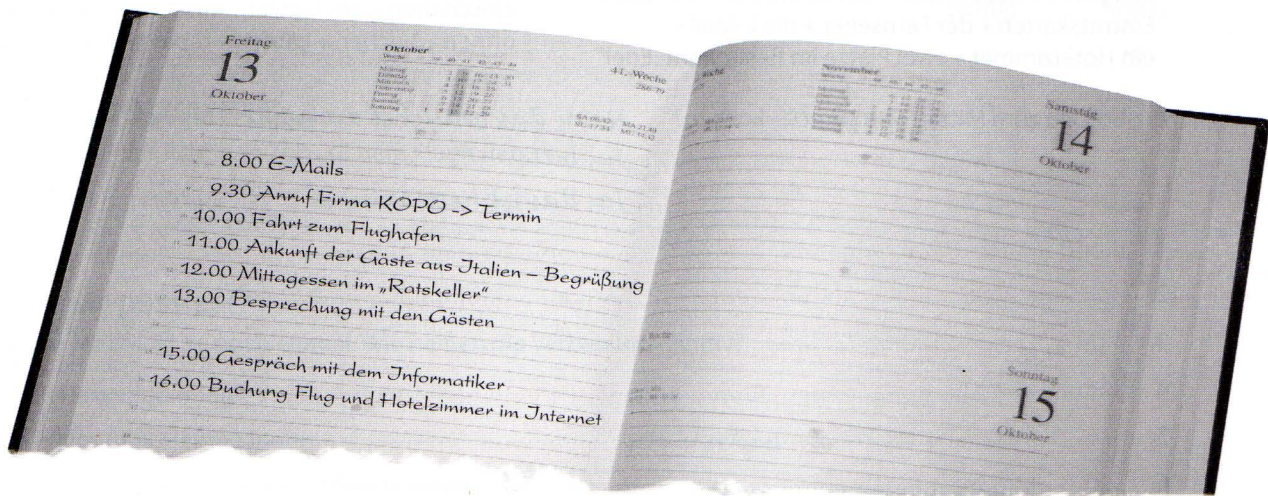 Freitag
13
Oktober
Oktober
Woche
41. Woche
8.00 E-Mails
9.30 Anruf Firma KOPO -> Termin
10.00 Fahrt zum Flughafen
11.00 Ankunft der Gäste aus Italien – Begrüßung
12.00 Mittagessen im „Ratskeller“
13.00 Besprechung mit den Gästen
15.00 Gespräch mit dem Informatiker
16.00 Buchung Flug und Hotelzimmer im Internet
Woche
November
Woche
Samstag
14
Oktober
Sonntag
15
Oktober